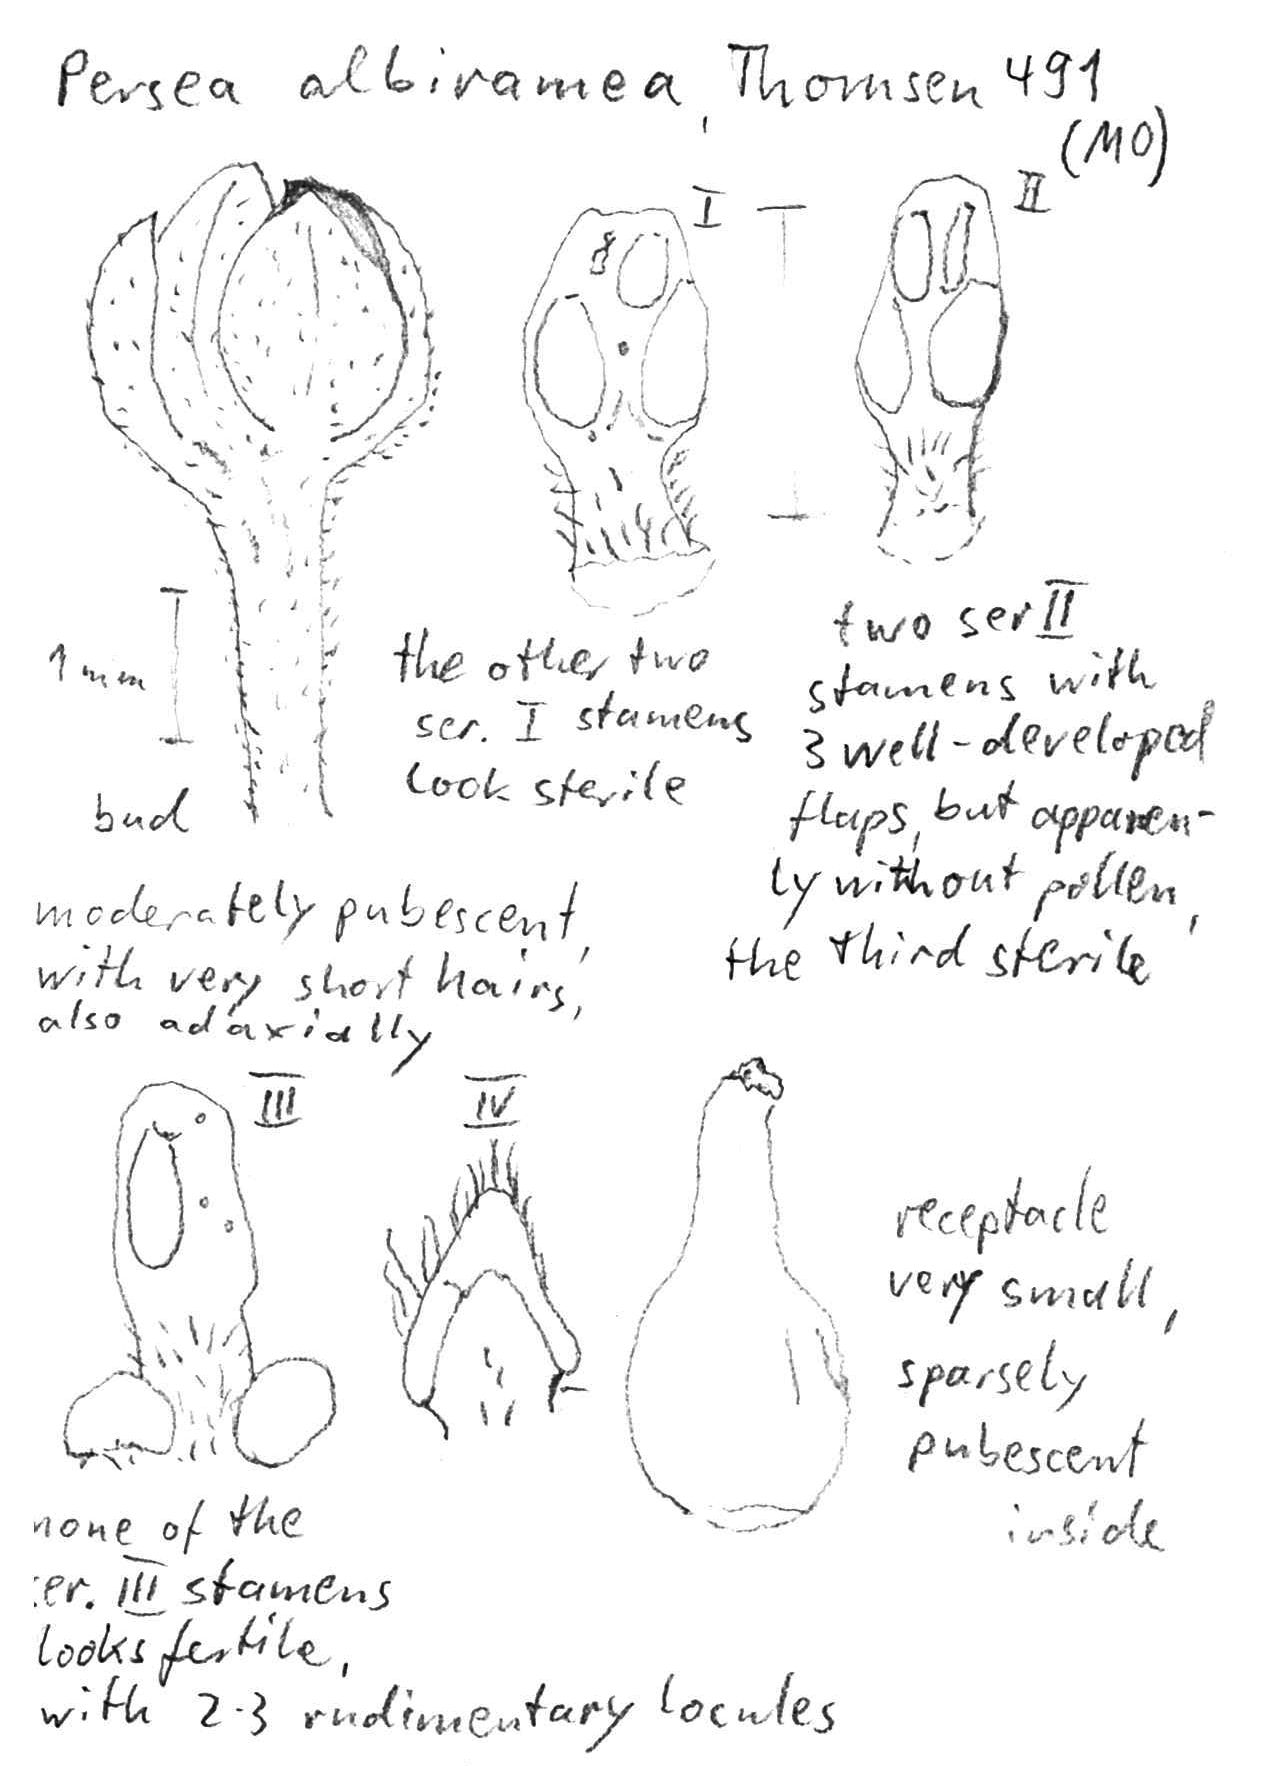 Persea albiramea, Thomsen 491
(MO)
I
II
1 mm
bud
the other two
ser. I stamens
look sterile
two ser II
stamens with
3 well-developed
flaps, but apparen-
ly without pollen,
the third sterile
moderately pubescent,
with very short hairs,
also adaxially
III
IV
receptacle
very small,
sparsely
pubescent
inside
none of the
er. III stamens
looks fertile,
with 2-3 rudimentary locules